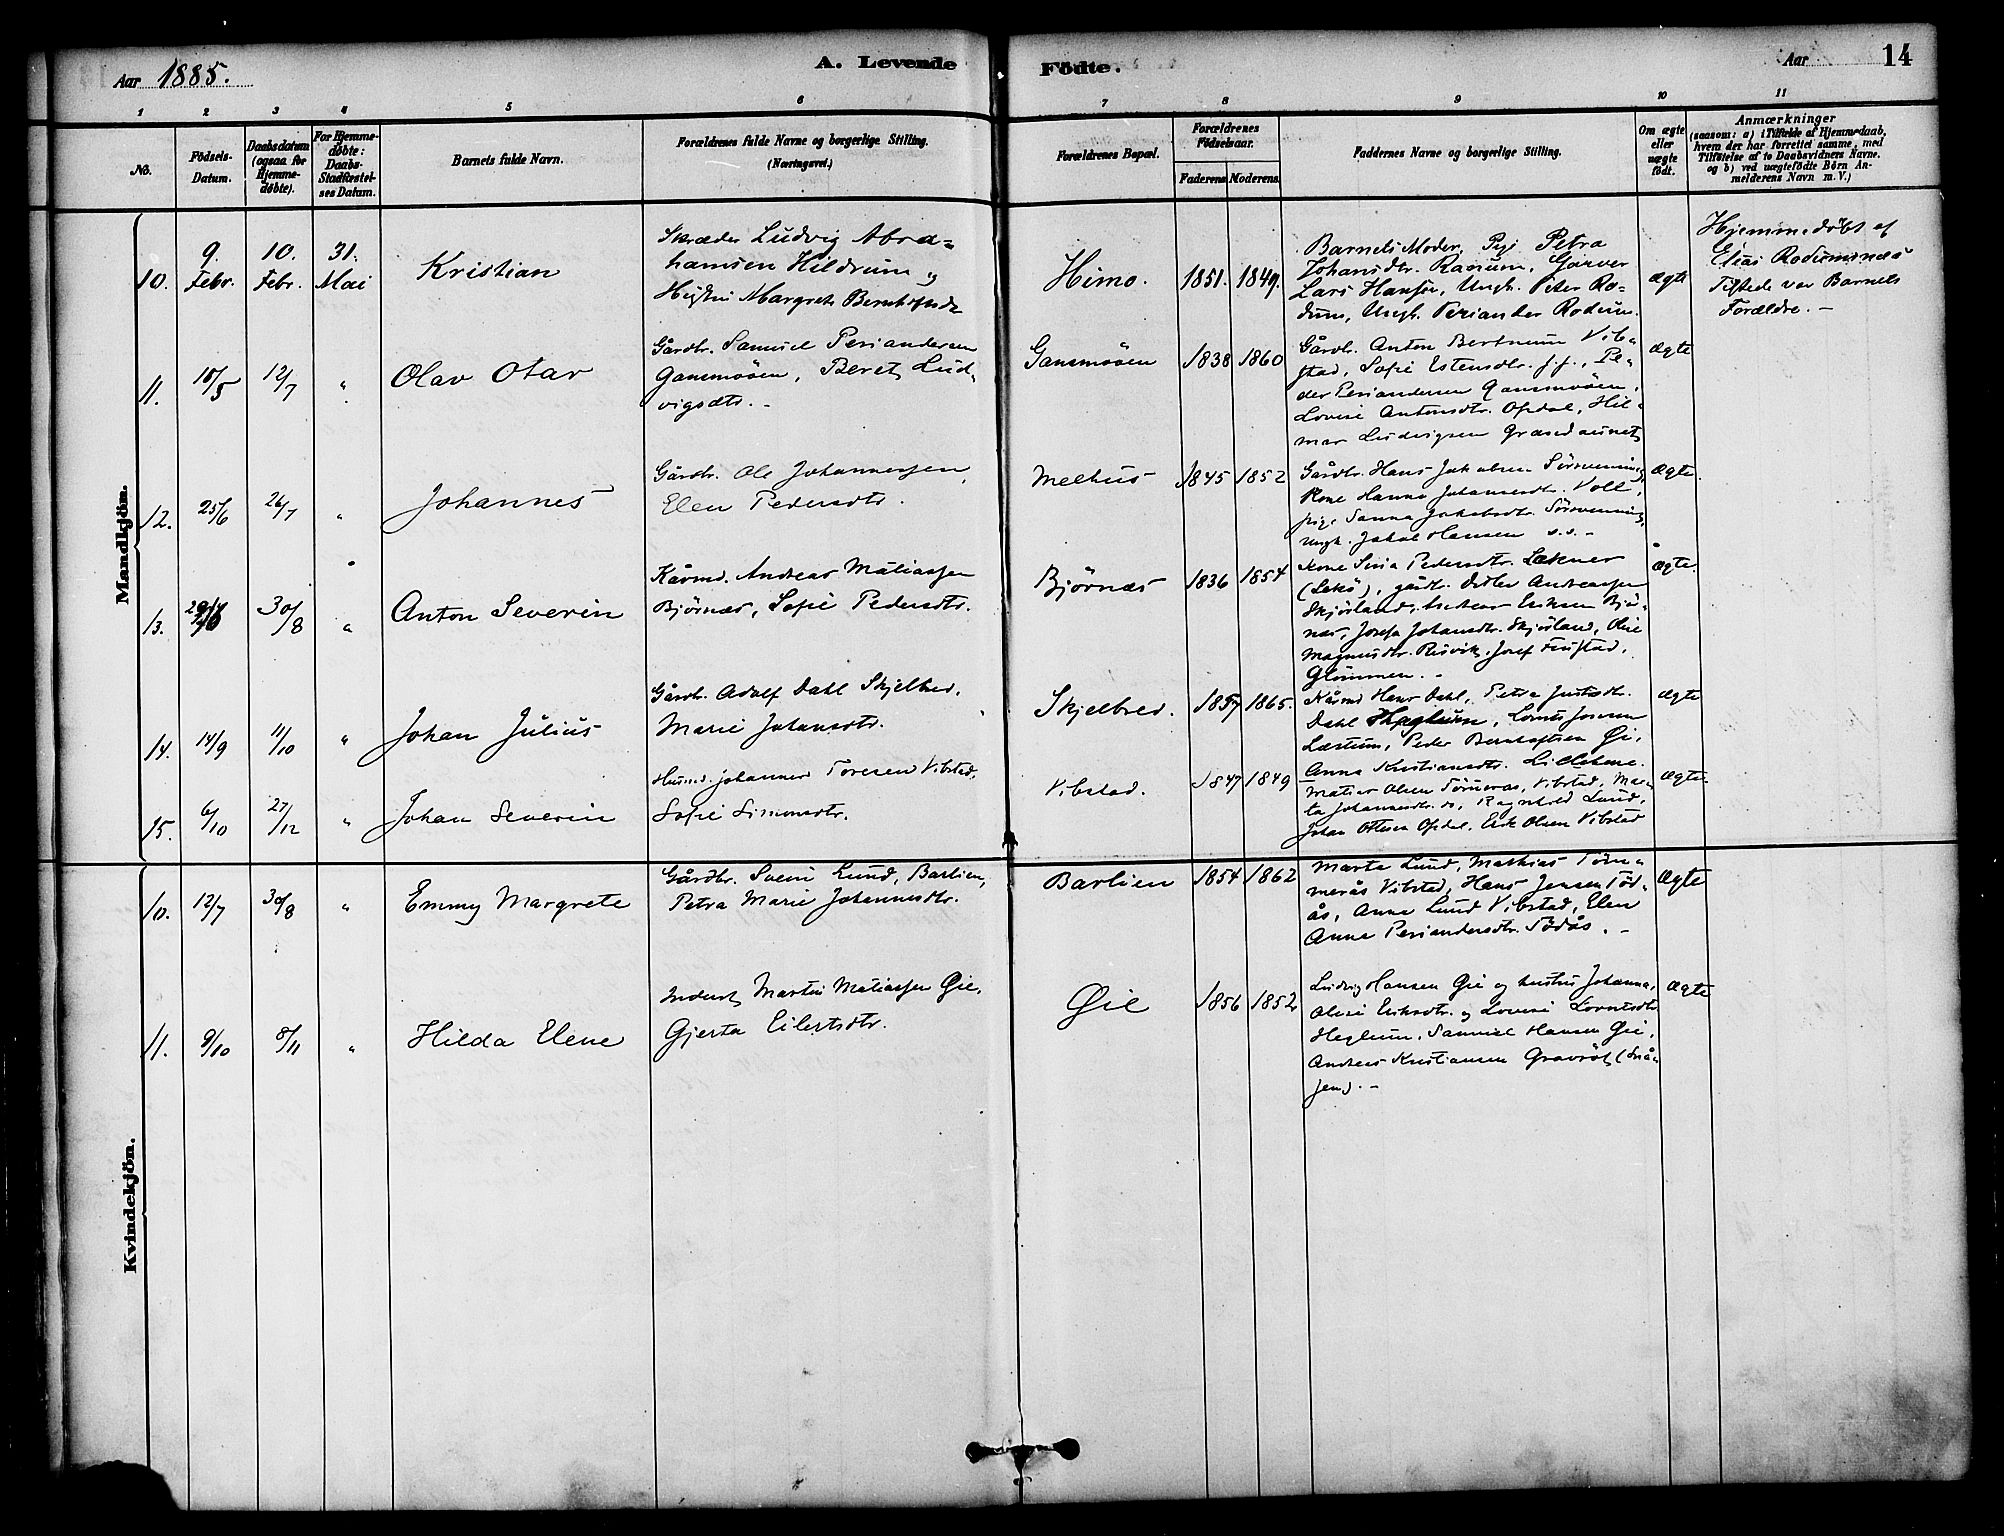 Aar 1885.
A. Levende Födte.
Aar 14
1 2 3 4 5 6 7 8 9 10 11
No.
Födsels-Datum.
Daabsdatum (ogsaa for Hjemme-døbte).
For Hjemme-døbte: Daabs-Stadfæstel-ses Datum.
Barnets fulde Navn.
Forældrenes fulde Navne og borgerlige Stilling.
(Næringsvei.)
Forældrenes Bopæl.
Forældrenes Födselsaar.
Faderens. Moderens.
Faddernes Navne og borgerlige Stilling.
Om ægte eller uægte født.
Anmærkninger
(saasom: a) i Tilfælde af Hjemmedaab,
hvem der har forrettet samme, med
Tilföielse af to Daabsvidners Navne.
og b) ved uægtefödte Börn An-
melderens Navn m. V.)
Mandkjön.
10. 9. Febr. 10. Febr. 31. Mai Kristian
Skræder Ludvig Abra=
hamsen Hildrum og
Margrete
Himo. 1851. 1849.
Barnets Moder, Petra
Johansdtr. Ranum, Garver
Lars Hansen, Ungk. Peter Ro=
dum, Ungk. Periander Rodum.
ægte
Hjemmedøbt af
Elias Rodumsnæs
Tilstede var Barnets
Forældre. -
11. 10/5 12/7 " Olav Otar
Gårdbr. Samuel Periandersen
Gansmoøen, Beret Lud=
vigsdtr. -
Gansmoøen 1838 1860
Gårdbr. Anton Bertnum Vib=
stad, Sofie Estensdtr. Pe=
der Periandersen Gansmoøen,
Lovise Antonsdtr. Opdal, Hil=
mar Ludvigsen
ægte
12. 25/6 26/7 " Johannes
Gårdbr. Ole Johannessen,
Elen Pedersdtr.
Melhus 1845 1852
Gårdbr. Hans Jakobsen
Kone Hanna Johannesdtr. Voll,
pige Sanna Jakobsdtr.
Ungk. Jakob Hansen s.s. -
ægte.
13. 30/8 " Anton Severin
Kårmd. Andreas Matiassen
Bjørnæs, Sofie Pedersdtr.
Bjørnæs 1836 1854
Kone Pedersdtr. Lekner
(Lekø), gårdbr. Andreassen
Skjørland, Andreas Eriksen Bjø=
næs, Josefa Johansdtr. Skjørland,
Magnusdtr. Risvik, Josef
Glömmen. -
ægte.
14. 14/9 11/10 " Johan Julius
Gårdbr. Adolf Dahl Skjelbred,
Marie Johansdtr.
Skjelbred. 1857 1865.
Kårmd Hans Dahl, Petra
Dahl Heglum,
Peder Øie,
Anna Kristiansdtr.
ægte
15. 6/10 27/12 " Johan Severin
Husmd. Johannes Toresen Vibstad,
Sofie Simonsdtr.
Vibstad. 1847 1849
Matias Olsen Vibstad, Mar=
ta Johannesdtr. Ragnhild Lund,
Johan Ottesen Opdal, Erik Olsen Vibstad
ægte.
Kvindekjön.
10. 12/7 30/8 " Emmy Margrete
Gårdbr. Svein Lund, Barlien,
Petra Marie Johannesdtr.
Barlien 1854 1862
Marta Lund, Mathias Töm=
merås Vibstad, Hans Jensen Töd=
ås, Anna Lund Vibstad, Elen
Anna Periandersdtr. Tödås. -
ægte
11. 9/10 8/11 " Hilda Elene
Inderst Martin Matiassen Øie,
Gjerta Eilertsdtr.
Øie 1856 1852
Ludvig Hansen Øie og hustru Johanna,
Olise Eriksdtr. og Lovise Lorntsdtr.
Heglum, Samuel Hansen Øie,
Andreas Kristiansen (Snå=
sen). -
ægte